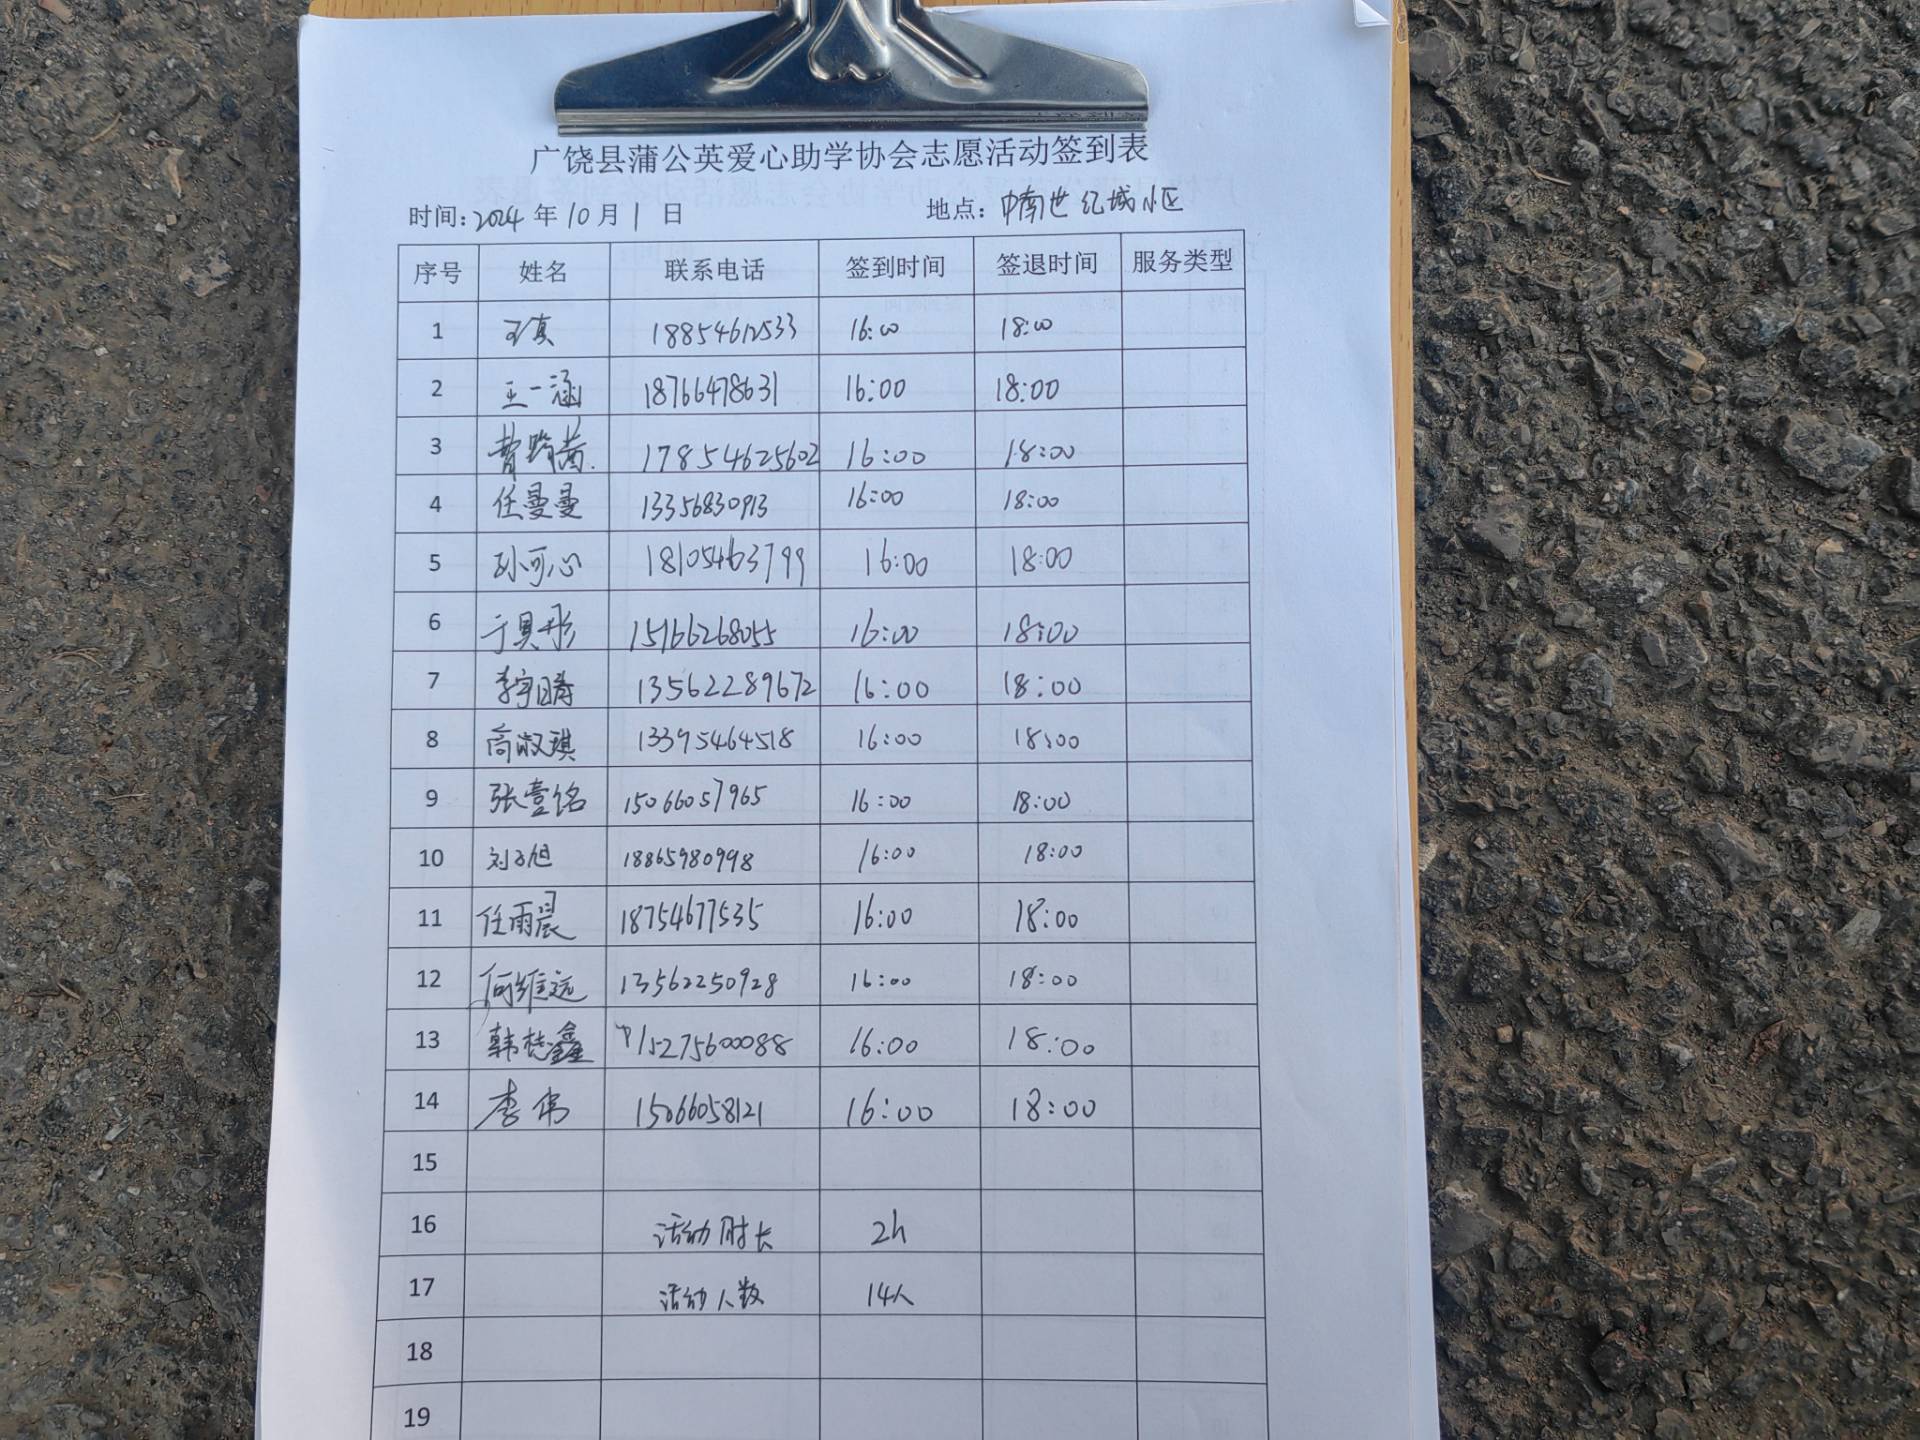 广饶县蒲公英爱心助学协会志愿活动签到表
时间: 2024 年 10 月 1 日 地点: 中南世纪城小区
序号 姓名 联系电话 签到时间 签退时间 服务类型
1 王真 18854612533 16:00 18:00
2 王一涵 18766478631 16:00 18:00
3 曹 17854625602 16:00 18:00
4 任曼曼 13356830913 16:00 18:00
5 孙可心 18105463799 16:00 18:00
6 于具彤 15166268055 16:00 18:00
7 李宇晴 13562289672 16:00 18:00
8 高淑琪 13395464518 16:00 18:00
9 张壹铭 15066057965 16:00 18:00
10 刘子旭 18865980998 16:00 18:00
11 任雨晨 18754677535 16:00 18:00
12 何维远 13562250928 16:00 18:00
13 韩梽鑫 15275600088 16:00 18:00
14 李伟 15066058121 16:00 18:00
15
16 活动时长 2h
17 活动人数 14人
18
19